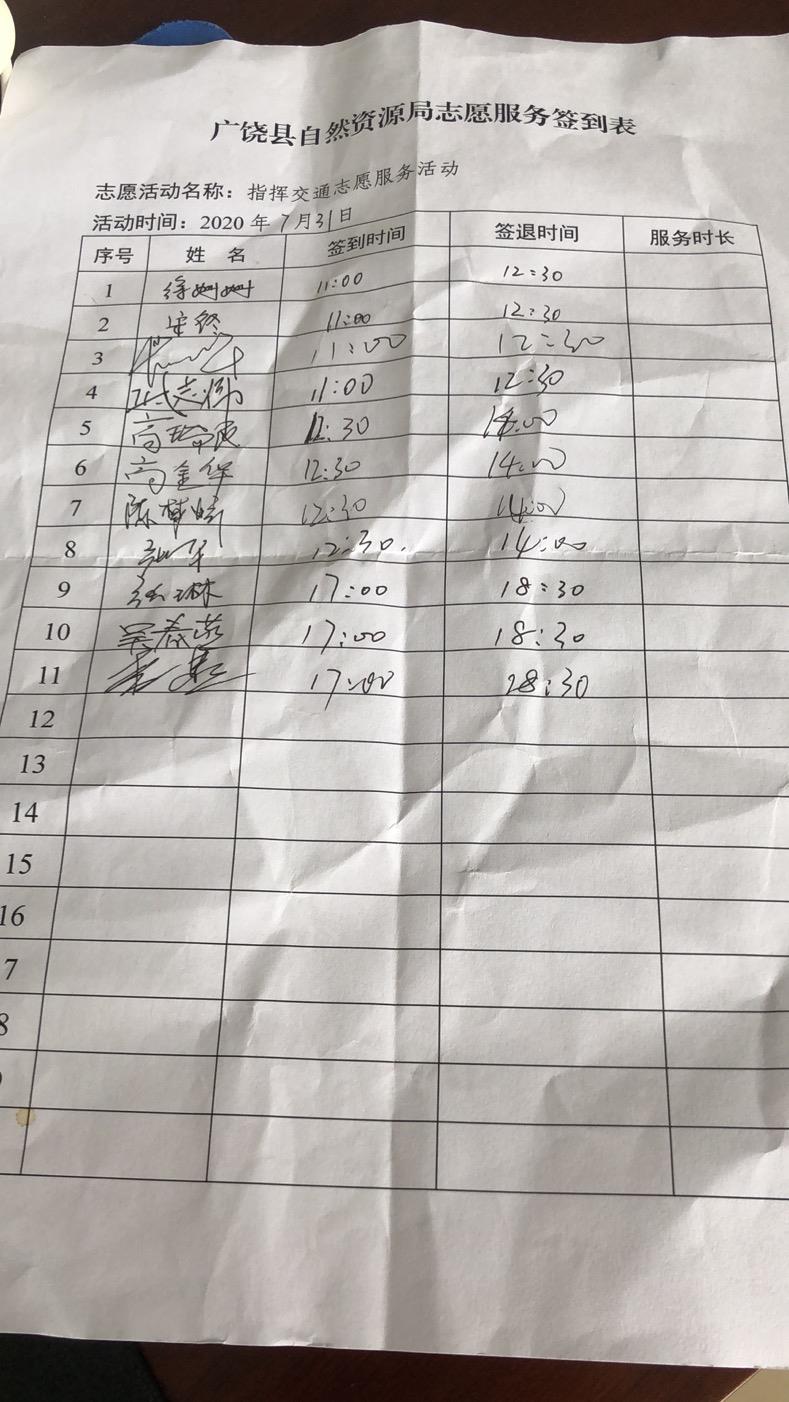 广饶县自然资源局志愿服务签到表
志愿活动名称：指挥交通志愿服务活动
活动时间：2020 年 7月31日
序号 姓 名 签到时间 签退时间 服务时长
1 徐姗姗 11:00 12:30
2 11:00 12:30
3 11:00 12:30
4 志 11:00 12:30
5 高 12:30 14:00
6 高金华 12:30 14:00
7 陈梦 12:30 14:00
8 华 12:30. 14:00
9 张琳 17:00 18:30
10 吴春燕 17:00 18:30
11 17:00 18:30
12
13
14
15
16
7
8